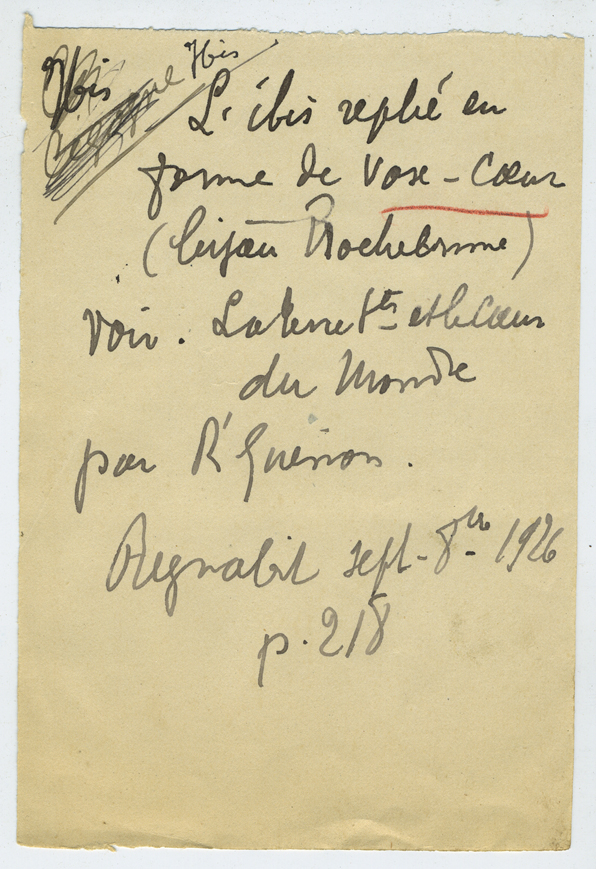 Ibis Ibis
L'ibis replié en
forme de Vase-Cœur
(bijou Rochebrune)
Voir. La terre Ste et le Cœur
du Monde
par R. Guénon.
Regnabit sept-8bre 1926
p. 218